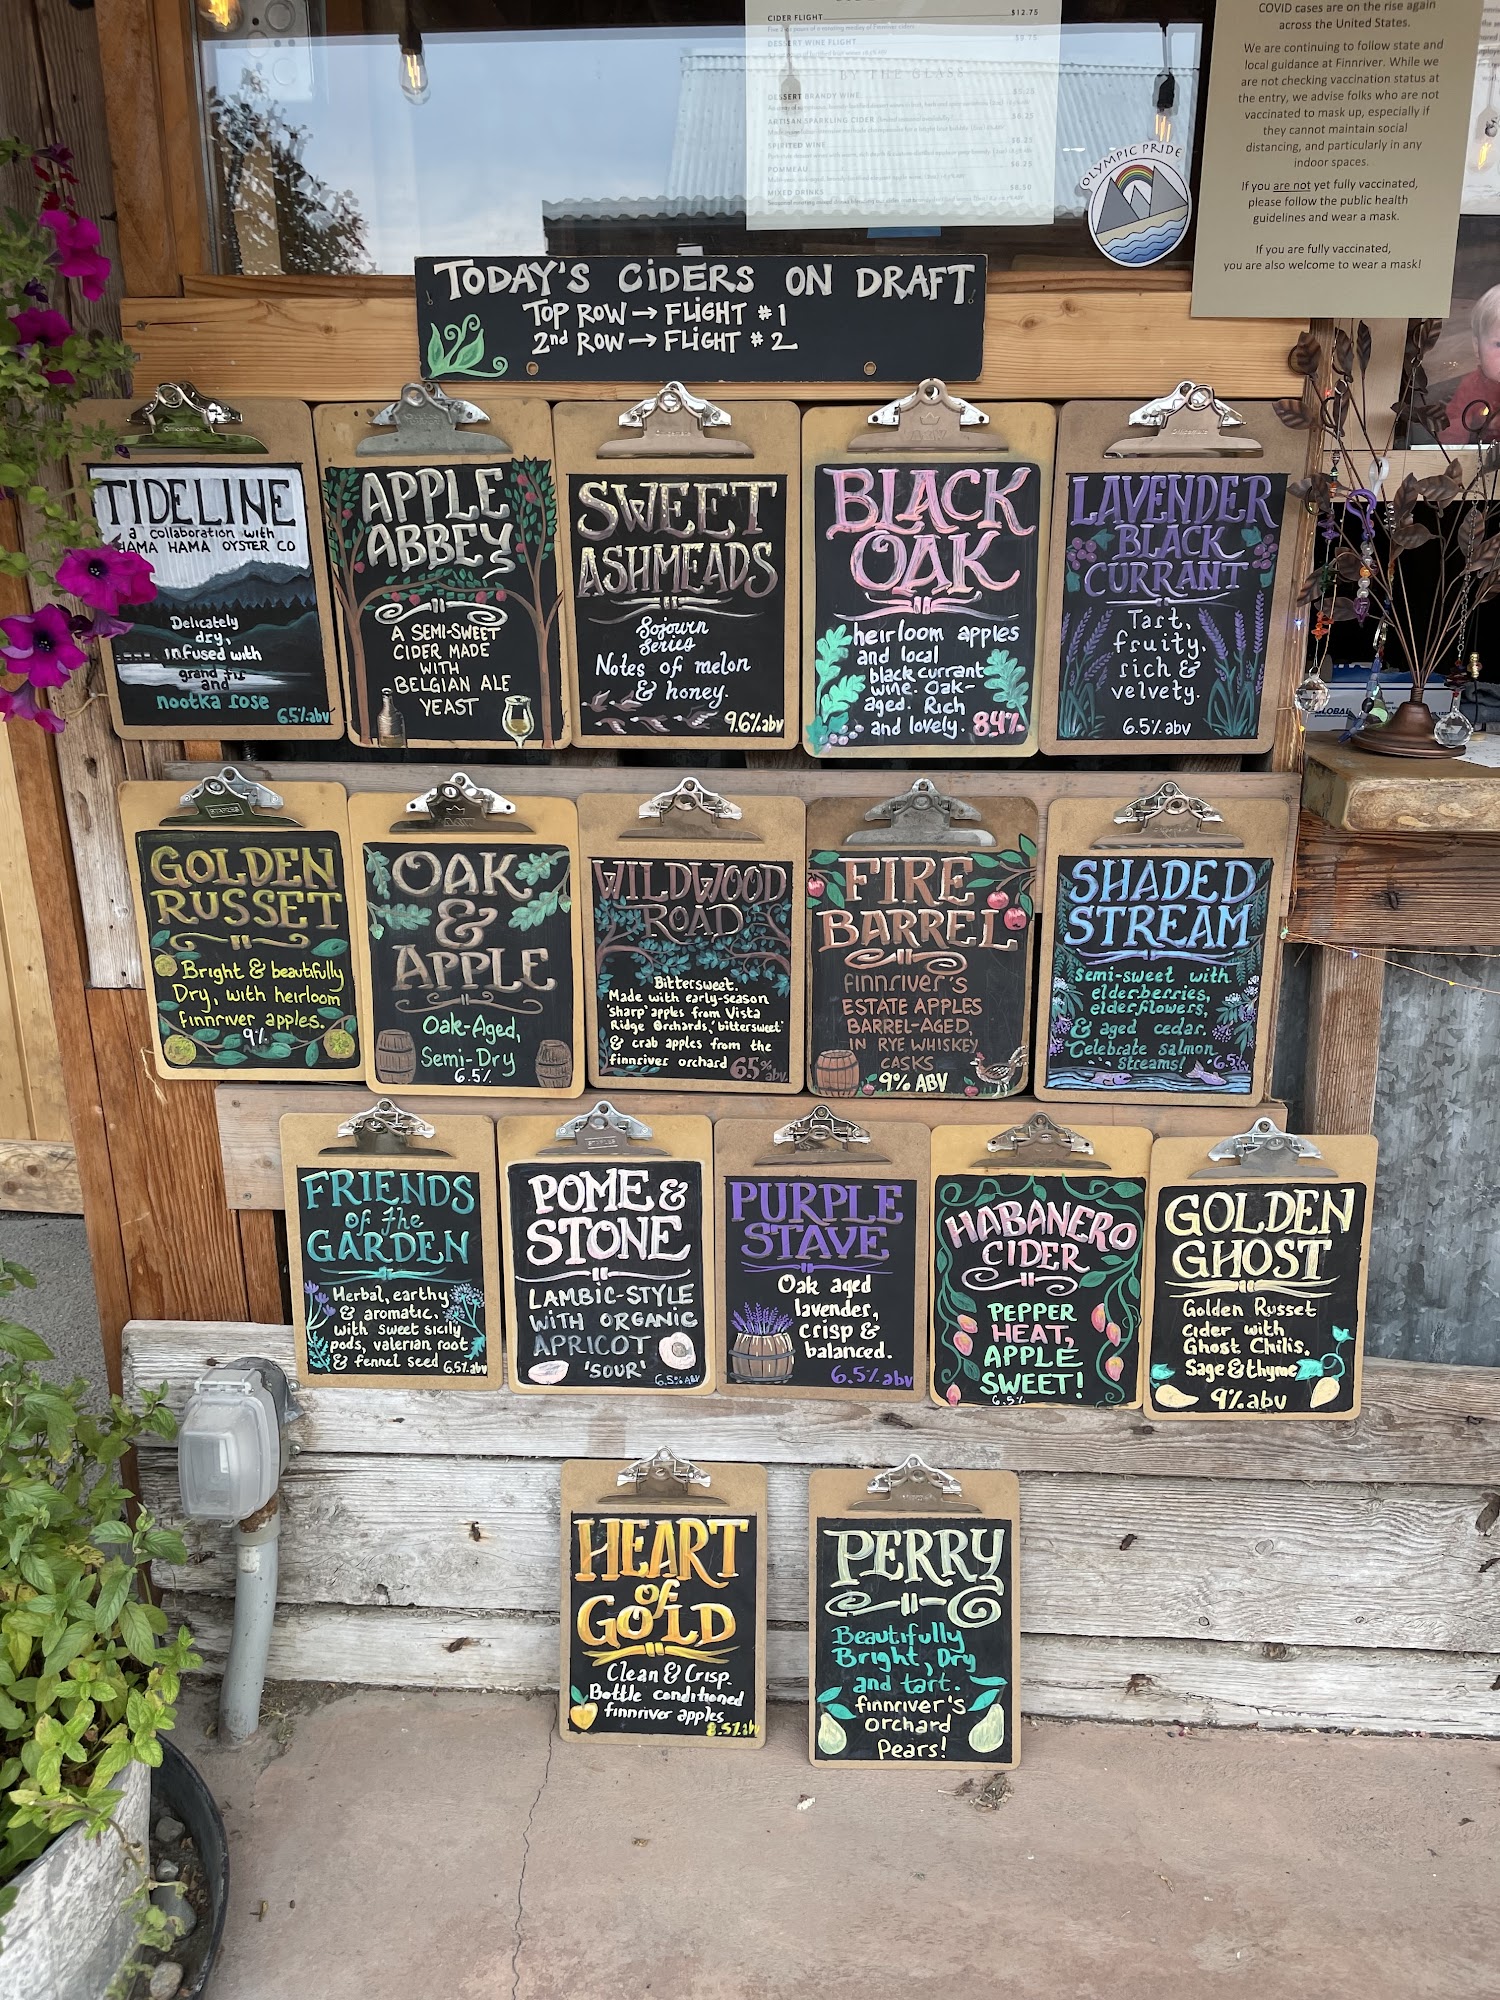 CIDER FLIGHT $12.75
DESSERT WINE FLIGHT $9.75
BY THE GLASS
DESSERT BRANDY WINE
ARTISAN SPARKLING CIDER $6.25
SPIRITED WINE $8.25
POMMEAU $6.25
MIXED DRINKS $8.50
OLYMPIC PRIDE
COVID cases are on the rise again
across the United States.
We are continuing to follow state and
local guidance at Finnriver. While we
are not checking vaccination status at
the entry, we advise folks who are not
vaccinated to mask up, especially if
they cannot maintain social
distancing, and particularly in any
indoor spaces.
If you are not yet fully vaccinated,
please follow the public health
guidelines and wear a mask.
If you are fully vaccinated,
you are also welcome to wear a mask!
TODAY'S CIDERS ON DRAFT
TOP ROW → FLIGHT #1
2nd ROW → FLIGHT #2
TIDELINE
a collaboration with
HAMA HAMA OYSTER CO
Delicately
dry,
infused with
grand fir
and
nootka rose
6.5%abv
APPLE
ABBEY
A SEMI-SWEET
CIDER MADE
WITH
BELGIAN ALE
YEAST
SWEET
ASHMEADS
Sojourn
Series
Notes of melon
& honey.
9.6%abv
BLACK
OAK
heirloom apples
and local
black currant
wine. Oak-
aged. Rich
and lovely. 8.4%
LAVENDER
BLACK
CURRANT
Tart,
fruity,
rich &
velvety.
6.5% abv
GOLDEN
RUSSET
Bright & beautifully
Dry, with heirloom
finnriver apples.
9%
OAK
&
APPLE
Oak-Aged,
Semi-Dry
6.5%
WILDWOOD
ROAD
Bittersweet.
Made with early-season
'sharp' apples from Vista
Ridge Orchards, 'bittersweet'
& crab apples from the
finnriver orchard 6.5% abv.
FIRE
BARREL
finnriver's
ESTATE APPLES
BARREL-AGED,
IN RYE WHISKEY
CASKS
9% ABV
SHADED
STREAM
semi-sweet with
elderberries,
elderflowers,
& aged cedar.
Celebrate salmon
streams! 6.5%
GLOBAL
FRIENDS
of the
GARDEN
Herbal, earthy
& aromatic.
with sweet sicily
pods, valerian root
& fennel seed 6.5%.abv
POME &
STONE
LAMBIC-STYLE
WITH ORGANIC
APRICOT
'SOUR'
6.5% ABV
PURPLE
STAVE
Oak aged
lavender,
crisp &
balanced.
6.5% abv
HABANERO
CIDER
PEPPER
HEAT,
APPLE
SWEET!
6.5%
GOLDEN
GHOST
Golden Russet
cider with
Ghost Chilis.
Sage & thyme
9% abv
HEART
of
GOLD
Clean & Crisp.
Bottle conditioned
finnriver apples
8.5% abv
PERRY
Beautifully
Bright, Dry
and tart.
finnriver's
orchard
Pears!